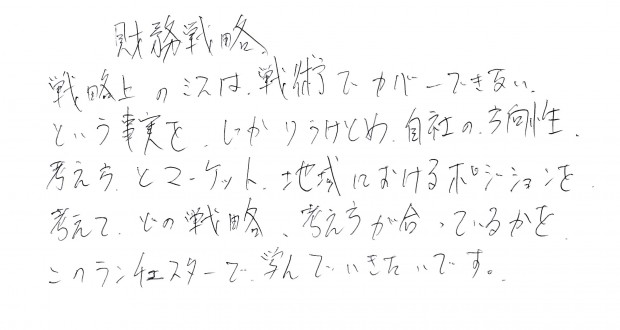 財務戦略、
戦略上のミスは、戦術でカバーできない、
という事実を、しっかりうけとめ、自社の、方向性、
考え方、とマーケット、地域におけるポジションを、
考えて、どの戦略、考え方が合っているかを、
このランチェスターで、学んでいきたいです。